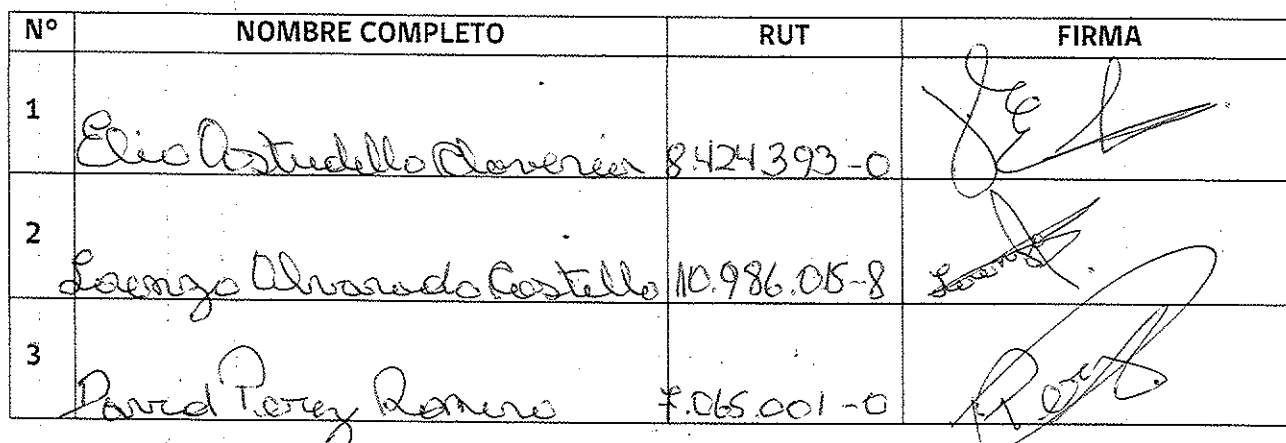 N° NOMBRE COMPLETO RUT FIRMA
1 Elio Astudello Claveria 8.424.393-0
2 Lorenzo Alvarado Costello 10.986.015-8
3 David Perez Romero 7.065.001-0